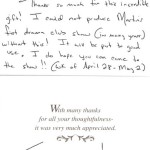 Thanks so much for this incredible
gift! I could not produce Martin's
first drama club show (in many years)
without this! It will be put to good
use. I do hope you can come to
the show!! (Eve of April 28 - May 2)
With many thanks
for all your thoughtfulness-
it was very much appreciated.